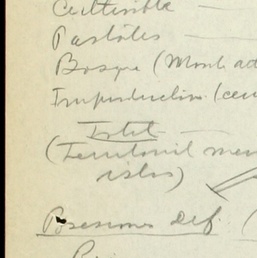 Cultivible
Pastales
Bosque (Mont ad
Improductiva (cen
Total
(Territorial men
islas)
Posesiones Def. (